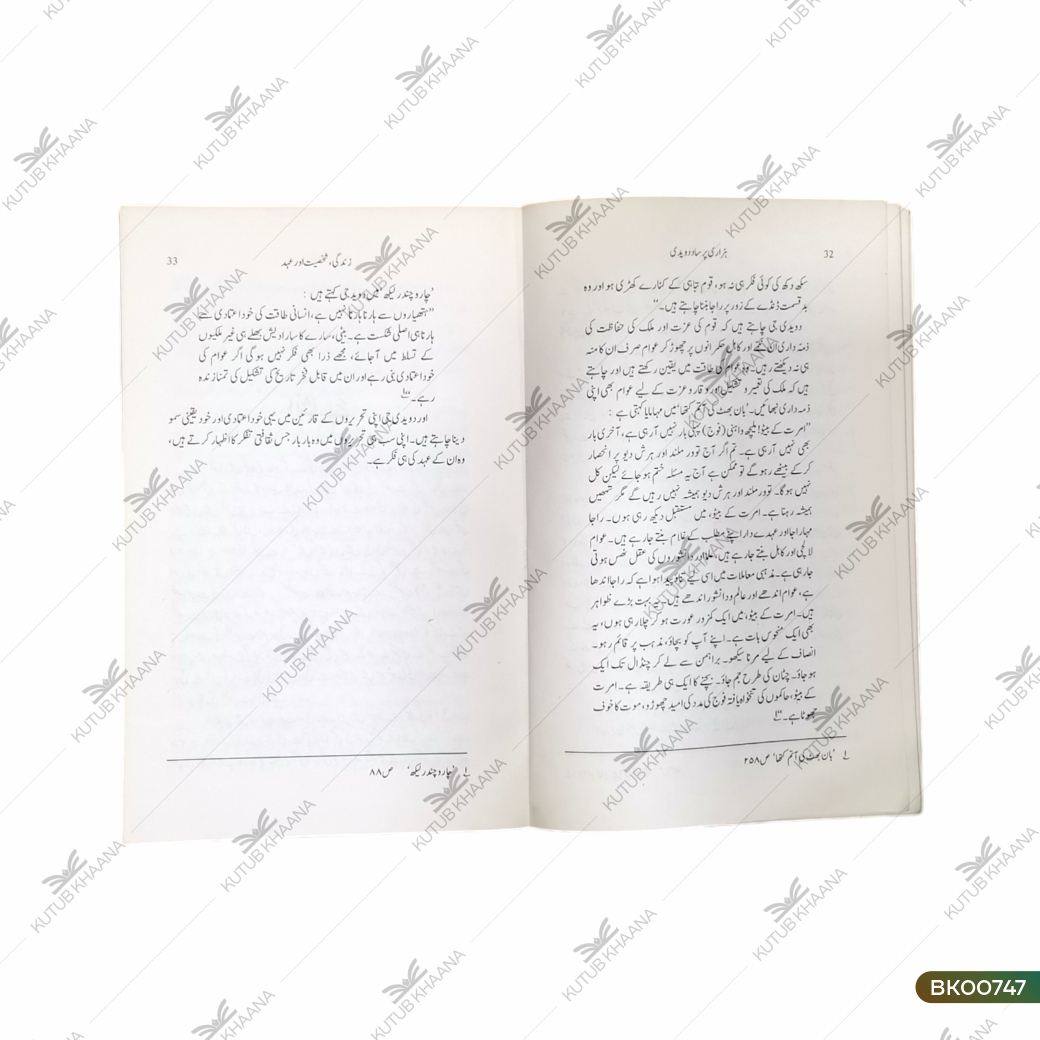 32
ہزاری پرساد دویدی
سکھ دکھ کی کوئی فکر ہی نہ ہو، قوم تباہی کے کنارے کھڑی ہو اور وہ
بدقسمت ڈنڈے کے زور پر راجا بننا چاہتے ہیں۔‘‘
دویدی جی چاہتے ہیں کہ قوم کی عزت اور ملک کی حفاظت کی
ذمہ داری ان نکمّے اور کاہل حکمرانوں پر چھوڑ کر عوام صرف ان کا منہ
ہی نہ دیکھتے رہیں۔ وہ عوام کی طاقت میں یقین رکھتے ہیں اور چاہتے
ہیں کہ ملک کی تعمیر و تشکیل اور وقار و عزت کے لیے عوام بھی اپنی
ذمہ داری نبھائیں۔ ’بان بھٹ کی آتم کتھا‘ میں مہامایا کہتی ہے :
’’امرت کے بیٹو! ملیچھ واہنی (فوج) پہلی بار نہیں آرہی ہے، آخری بار
بھی نہیں آرہی ہے۔ تم اگر آج تووَر ملند اور ہرش دیو پر انحصار
کرکے بیٹھے رہوگے تو ممکن ہے آج یہ مسئلہ ختم ہوجائے لیکن کل
نہیں ہوگا۔ تووَر ملند اور ہرش دیو ہمیشہ نہیں رہیں گے مگر تمھیں
ہمیشہ رہنا ہے۔ امرت کے بیٹو، میں مستقبل دیکھ رہی ہوں۔ راجا
مہاراجا اور عہدے دار اپنے مطلب کے غلام بنتے جارہے ہیں۔ عوام
لالچی اور کاہل بنتے جارہے ہیں، علما اور دانشوروں کی عقل ٹھس ہوتی
جارہی ہے۔ مذہبی معاملات میں اسی لیے تناؤ پیدا ہوا ہے کہ راجا اندھا
ہے، عوام اندھے اور عالم و دانشور اندھے ہیں۔ یہ بہت بڑے ظواہر
ہیں۔ امرت کے بیٹو، میں ایک کمزور عورت ہوکر چلارہی ہوں، یہ
بھی ایک منحوس بات ہے۔ اپنے آپ کو بچاؤ، مذہب پر قائم رہو۔
انصاف کے لیے مرنا سیکھو۔ براہمن سے لے کر چنڈال تک ایک
ہوجاؤ۔ چٹان کی طرح جم جاؤ۔ بچنے کا ایک ہی طریقہ ہے۔ امرت
کے بیٹو، حاکموں کی تنخواہ یافتہ فوج کی مدد کی امید چھوڑو، موت کا خوف
جھوٹا ہے۔‘‘۱
۱ ’بان بھٹ کی آتم کتھا‘ ص ۲۵۸
زندگی، شخصیت اور عہد
33
’چارو چندر لیکھ‘ میں دویدی جی کہتے ہیں :
’’ہتھیاروں سے ہارنا ہارنا نہیں ہے، انسانی طاقت کی خود اعتمادی سے
ہارنا ہی اصلی شکست ہے۔ بیٹی، سارے کا سارا دیش بھلے ہی غیر ملکیوں
کے تسلط میں آجائے، مجھے ذرا بھی فکر نہیں ہوگی اگر عوام کی
خود اعتمادی بنی رہے اور ان میں قابل فخر تاریخ کی تشکیل کی تمنا زندہ
رہے۔‘‘۱
اور دویدی جی اپنی تحریروں کے قارئین میں یہی خود اعتمادی اور خود یقینی سمو
دینا چاہتے ہیں۔ اپنی سب ہی تحریروں میں وہ بار بار جس ثقافتی تفکر کا اظہار کرتے ہیں،
وہ ان کے عہد کی ہی فکر ہے۔
۱ ’چارو چندر لیکھ‘ ص ۸۸
KUTUB KHAANA
BK00747